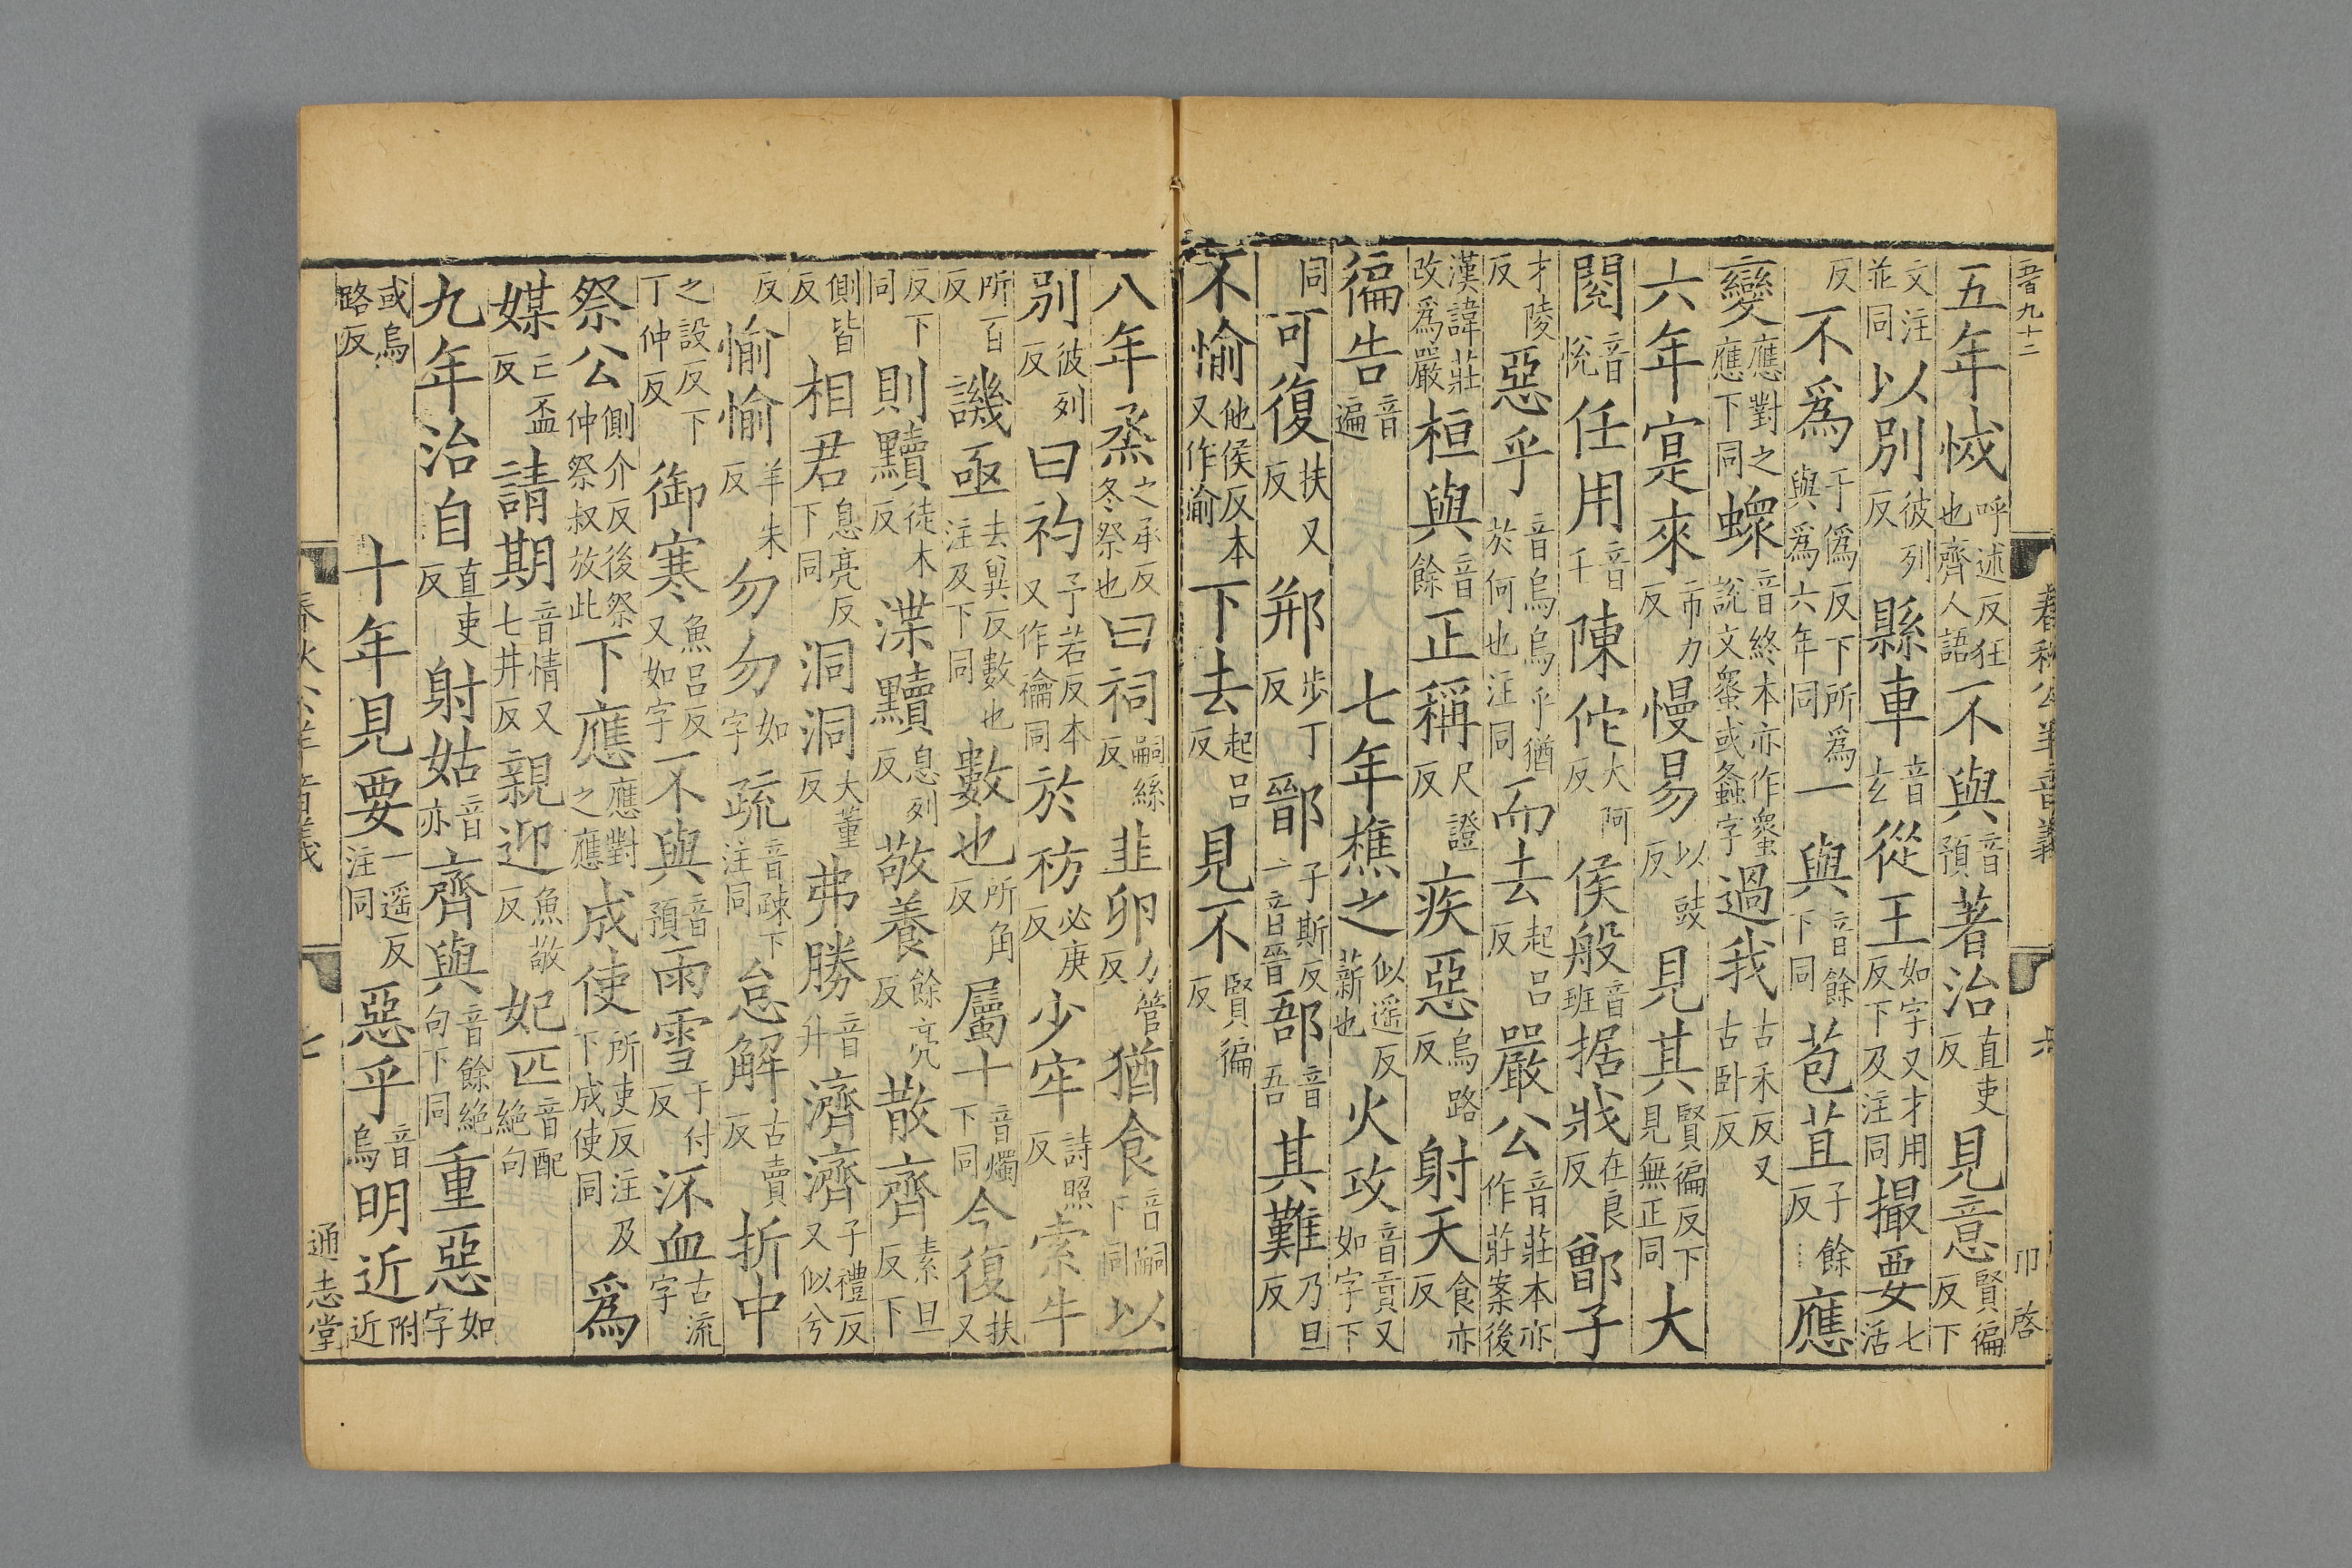 音九十二
春秋公羊音義
六
卬啓
五年怴呼述反狂也齊人語不與音預著治直吏反見意賢徧反下
文注並同以別彼列反縣車音玄從王如字又才用反下及注同撮要七活
反不爲于僞反下所爲與爲六年同一與音餘下同苞苴子餘反應
變應對之應下同螽音終本亦作䗥說文䗥或螽字過我古禾反又古卧反
六年寔來市力反慢易以豉反見其賢徧反下見無正同大
閱音悅任用音千陳佗大阿反侯般音班据戕在良反鄫子
才陵反惡乎音烏烏乎猶於何也注同而去起呂反嚴公音莊本亦作莊案後
漢諱莊改爲嚴桓與音餘正稱尺證反疾惡烏路反射天食亦反
徧告音遍七年樵之似遥反薪也火攻音貢又如字下
同可復扶又反郱步丁反鄑子斯反一音晉郚音吾其難乃旦反
不愉他侯反本又作偷下去起呂反見不賢徧反
八年烝之承反冬祭也曰祠嗣絲反韭卵力管反猶食音嗣下同以
別彼列反曰礿予若反本又作禴同於祊必庚反少牢詩照反索牛
所百反譏亟去兾反數也注及下同數也所角反屬十音燭下同今復扶又
反下同則黷徒木反渫黷息列反敬養餘亮反散齊素旦反下
側皆反相君息亮反下同洞洞大董反弗勝音升濟濟子禮反又似兮
反愉愉羊朱反勿勿如字疏音疎下注同怠解古賣反折中
之設反下丁仲反御寒魚呂反又如字不與音預雨雪于付反沠血古流字
祭公側介反後祭仲祭叔放此下應應對之應成使所吏反注及下成使同爲
媒亡盃反請期音情又七井反親迎魚敬反妃匹音配絶句
九年治自直吏反射姑音亦齊與音餘絶句下同重惡如字
或烏路反十年見要一遥反注同惡乎音烏明近附近
春秋公羊音義
七
通志堂